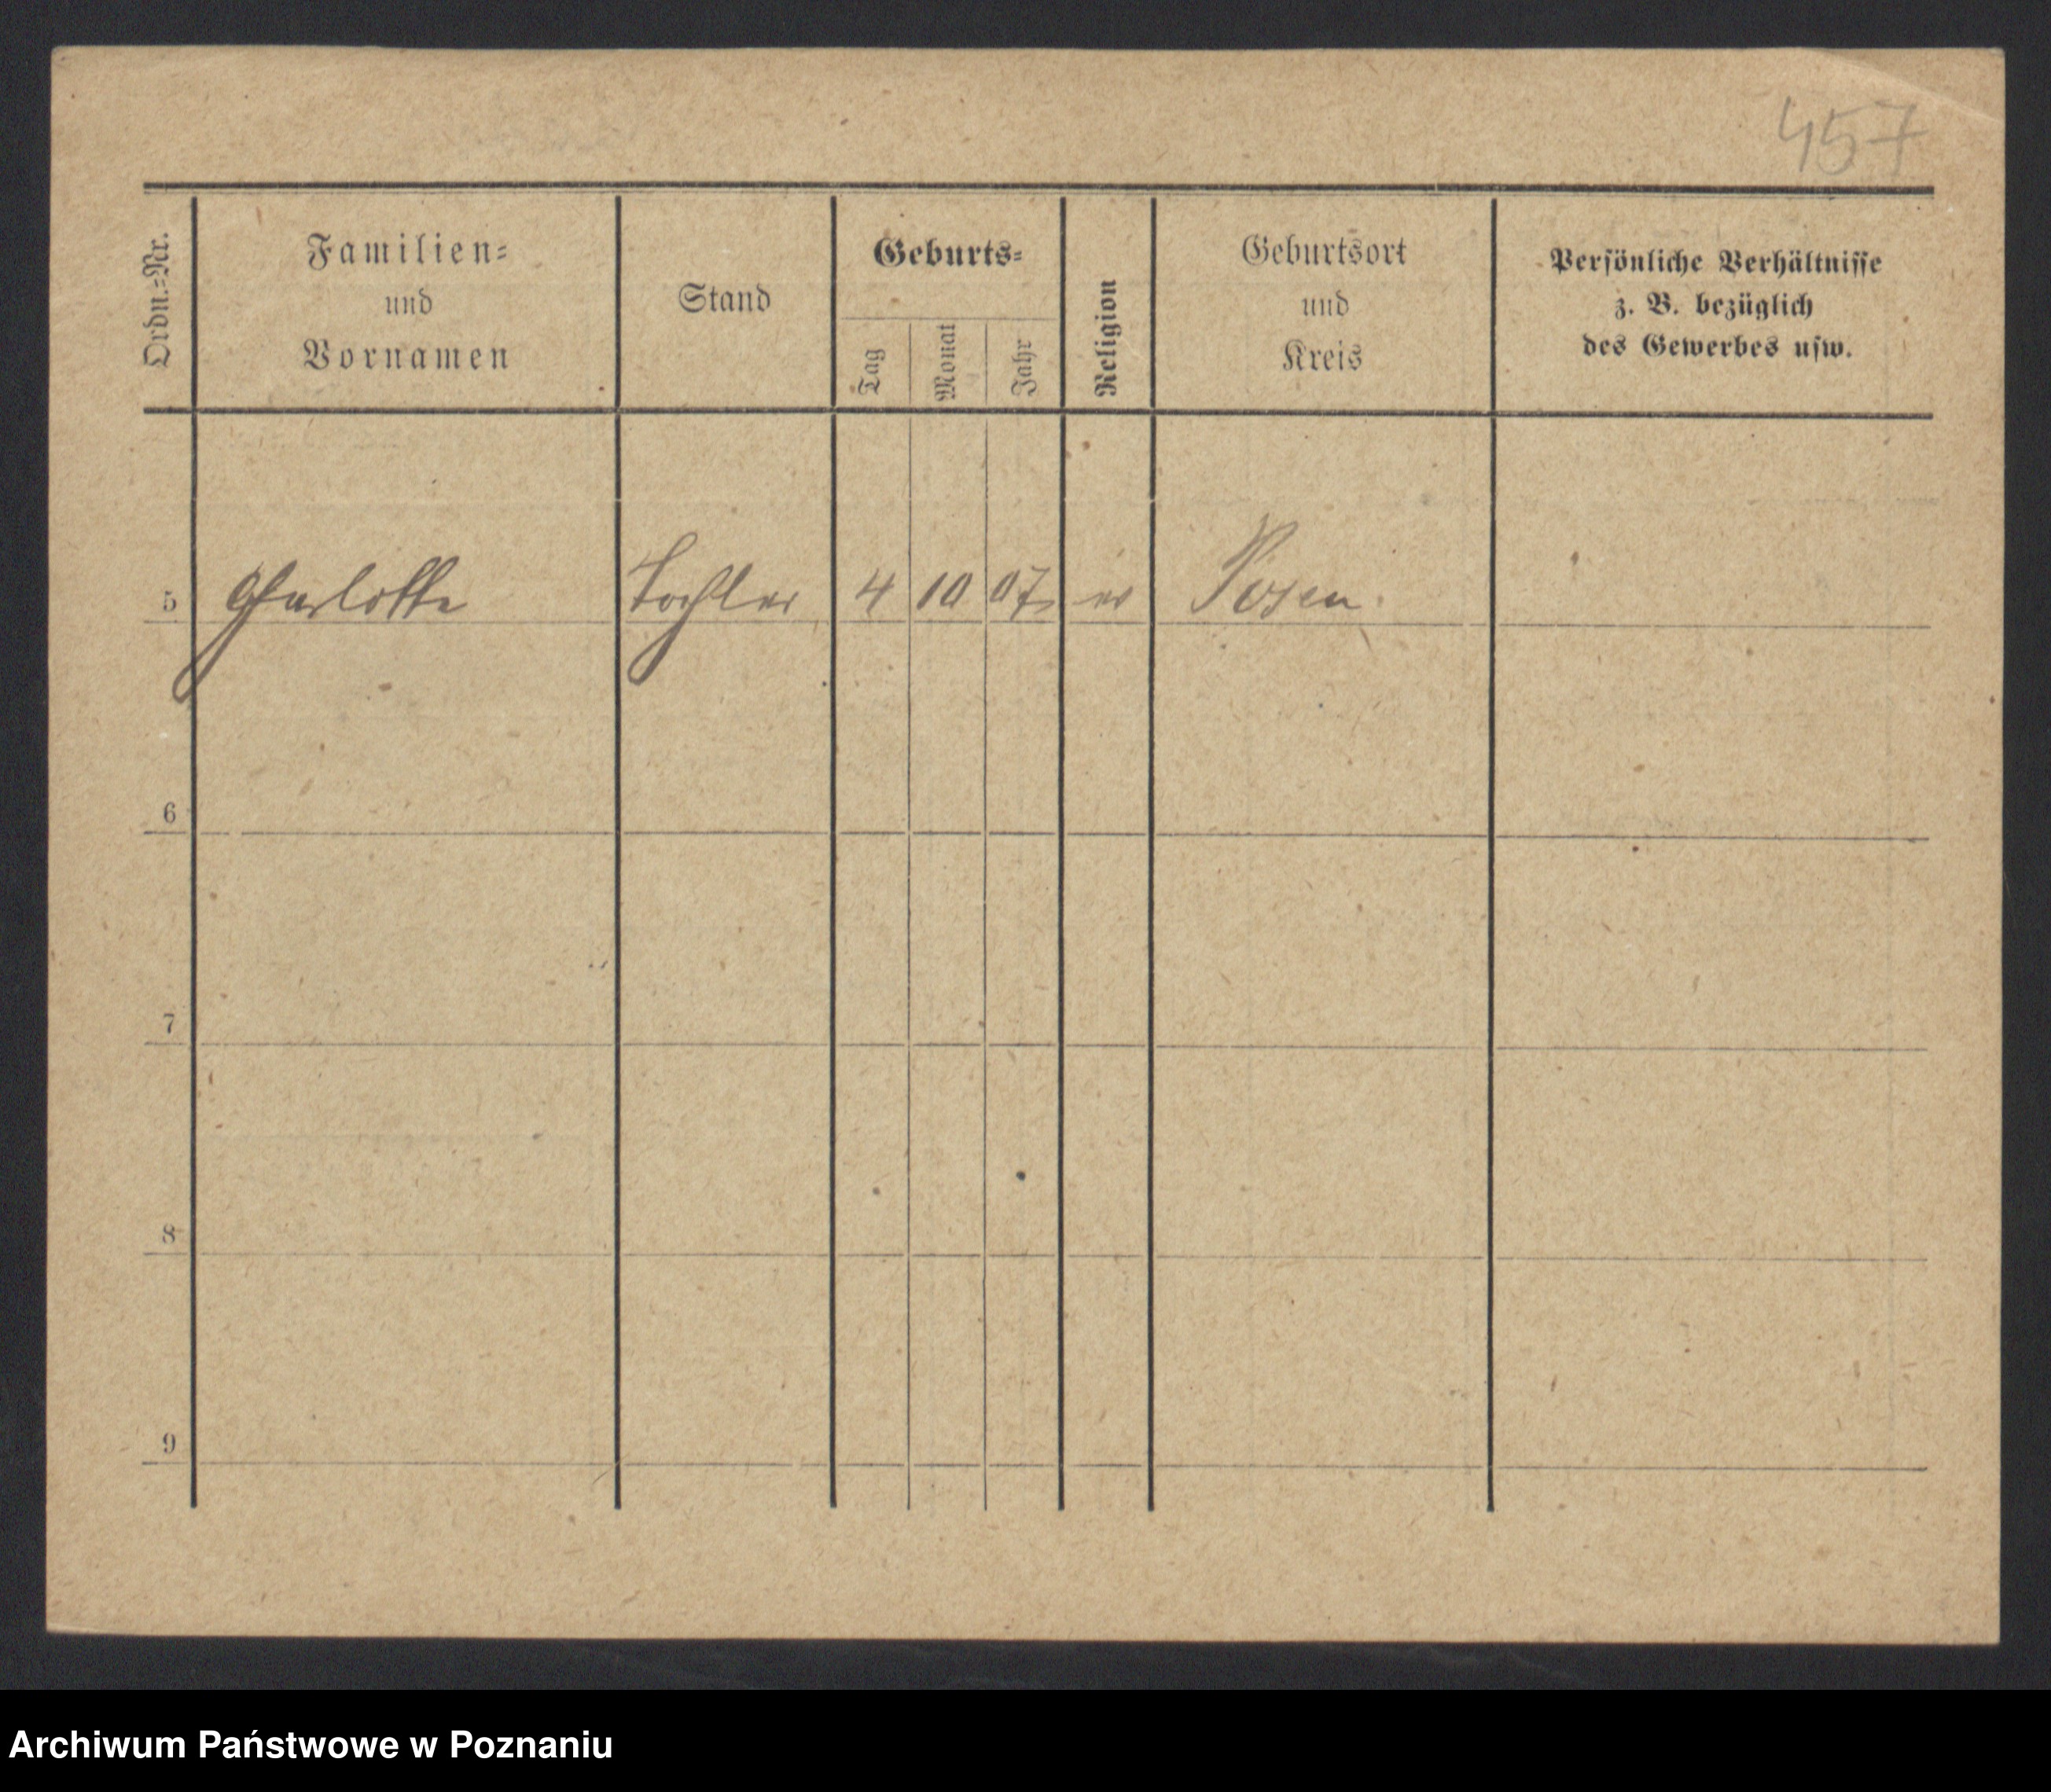 457
Ordn.-Nr.
Familien-
und
Vornamen
Stand
Geburts-
Tag
Monat
Jahr
Religion
Geburtsort
und
Kreis
Persönliche Verhältnisse
z. B. bezüglich
des Gewerbes usw.
5 Charlotte Tochter 4 10 07 ev Posen.
6
7
8
9
Archiwum Państwowe w Poznaniu